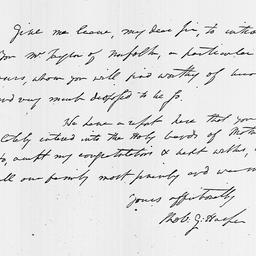 Give me leave, my dear Sir, to
you Mr. Taylor of Norfolk, a particular
whom you will find worthy of
and very much disposed to be so.
We have a report here that you
entered into the Holy bands of
accept my congratulations & best wishes,
all our family most sincerely and
yours affectionately
Rob. G. Harper